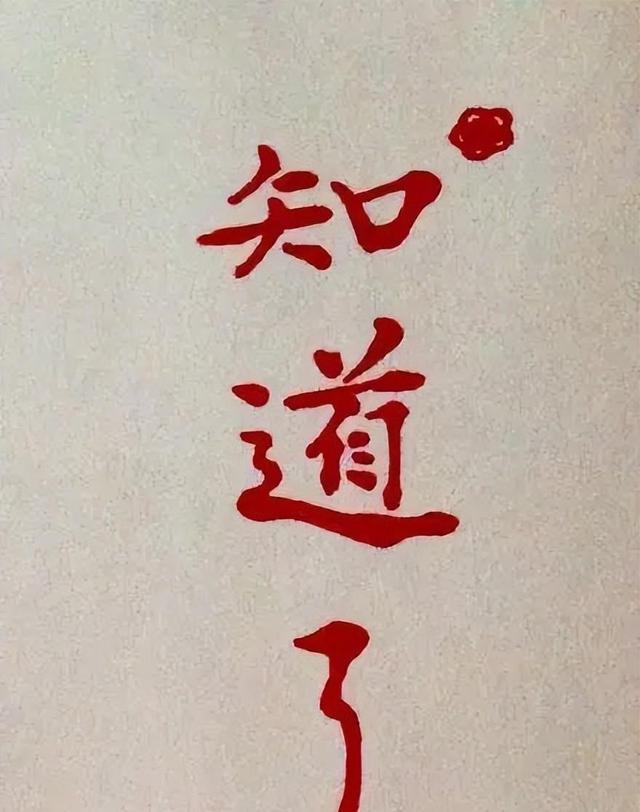 知道了